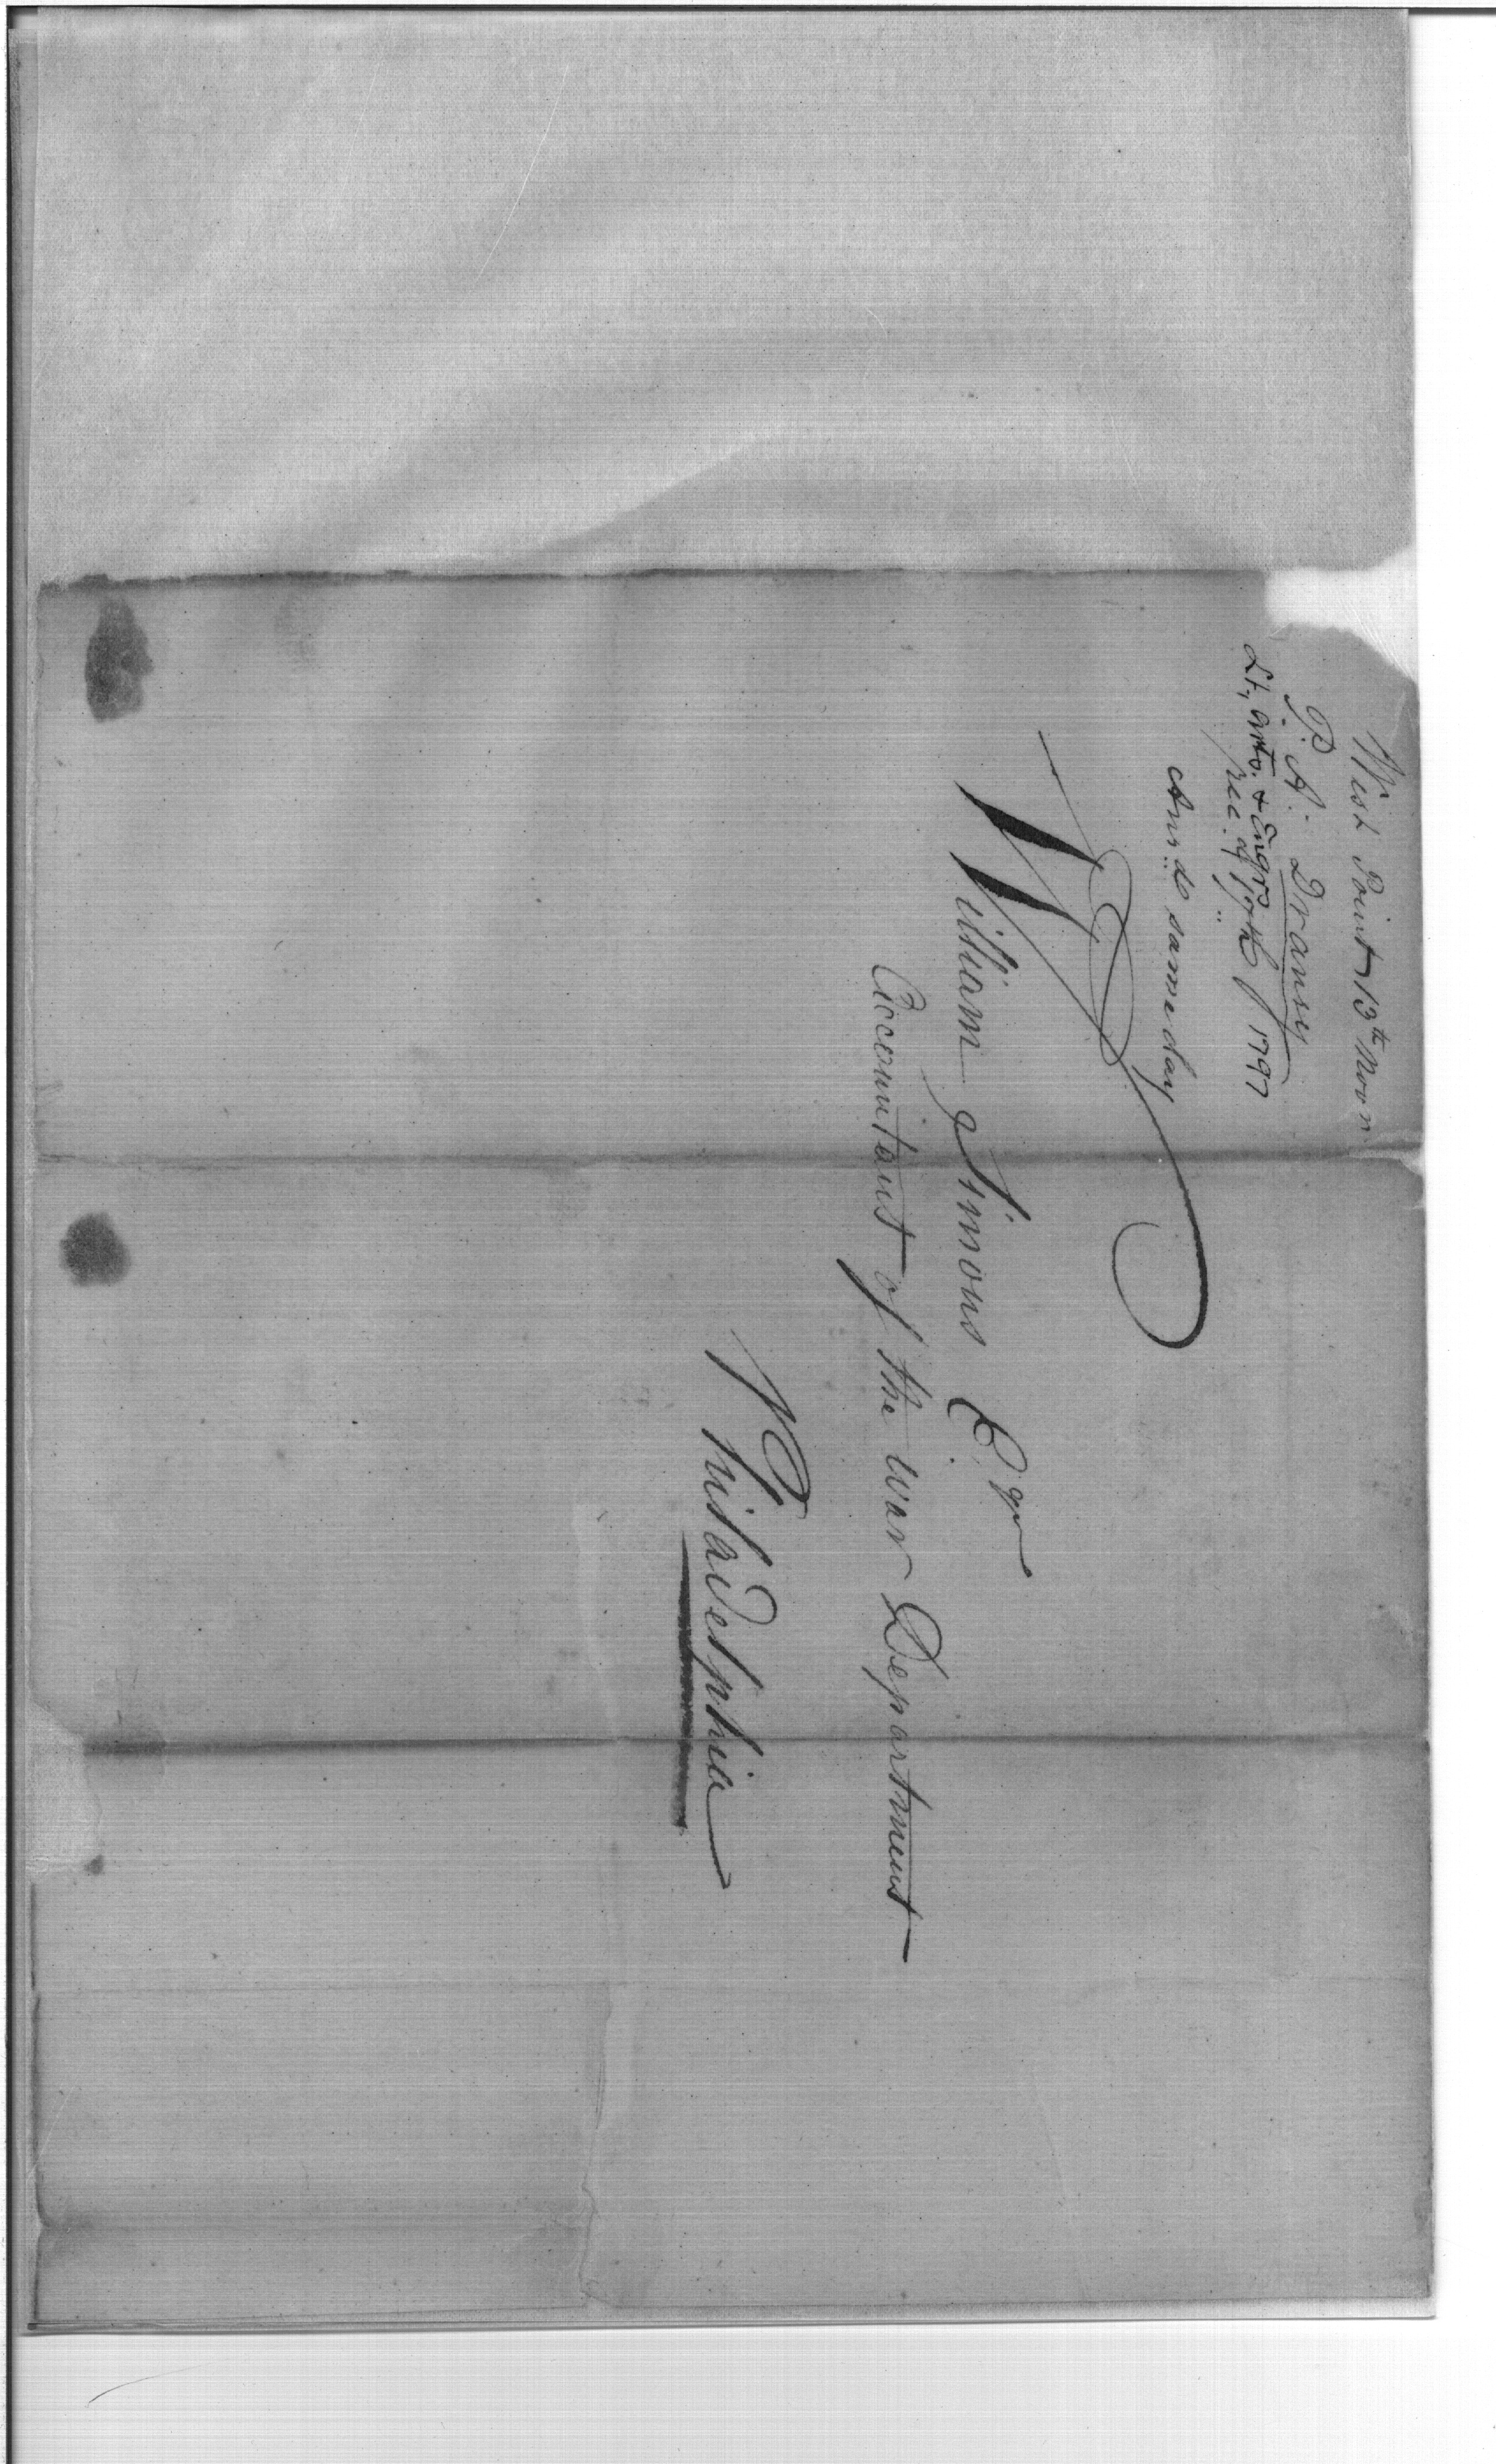 West Point 13th Novr
P. A. Dransy
Lt, Arts. & Engrs
rec. 1797
Ans.d same day
William Simons Esqr
Accountant of the War Department
Philadelphia